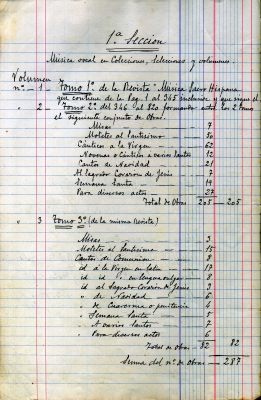 1ª Seccion
Música vocal en Colecciones, selecciones y volumenes.
Volumen
nº - 1 - Tomo 1º de la Revista Música Sacro Hispana
que contiene de la pag. 1 al 345 inclusive y que sigue el
" 2 - Tomo 2º del 346 al 820 formando entre los 2 tomos
el siguiente conjunto de Obras.
Misas - 7
Motetes al Santísimo - 50
Cánticos a la Virgen - 62
Novenas o Cánticos a varios Santos - 12
Cantos de Navidad - 21
Al Sagrado Corazon de Jesús - 7
Semana Santa - 19
Para diversos actos - 27
Total de Obras 205 - 205
" 3 Tomo 3º (de la misma Revista)
Misas - 3
Motetes al Santísimo - 15
Cantos de Comunion - 8
id a la Virgen en latin - 17
id id en lengua vulgar - 8
id al Sagrado Corazon de Jesús - 3
" de Navidad - 6
" de Cuaresma o penitencia - 4
" Semana Santa - 5
" A varios Santos - 7
" Para diversos actos - 6
Total de Obras - 82 82
Suma del nº de Obras - 287